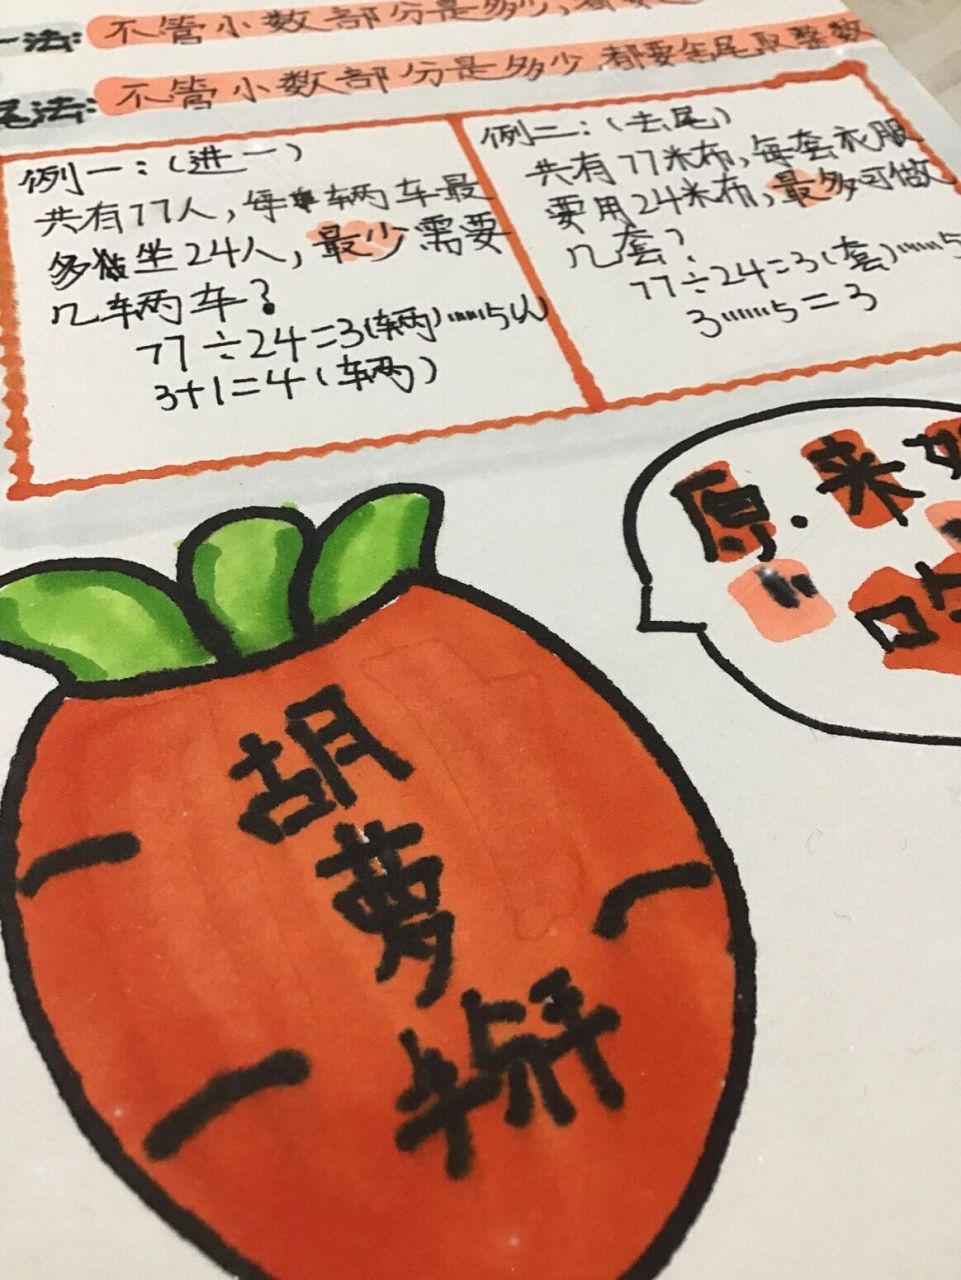 一法: 不管小数部分是多少,都要
尾法: 不管小数部分是多少,都要舍尾取整数
例一:(进一)
共有77人,每辆车最
多坐24人,最少需要
几辆车?
77÷24=3(辆)……5(人)
3+1=4(辆)
例二:(去尾)
共有77米布,每套衣服
要用24米布,最多可做
几套?
77÷24=3(套)……5
3……5=3
原来如
胡
萝